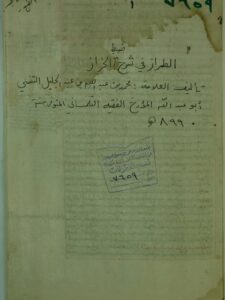 ٧٦٥٩
ضبط
الطراز في شرح الخراز
تأليف العلامة : محمد بن عبد الله بن عبد الجليل التنسي
أبو عبد الله المؤرخ الفقيه التلمساني المتوفى سنة
٨٩٩ هـ
٧٦٥٩